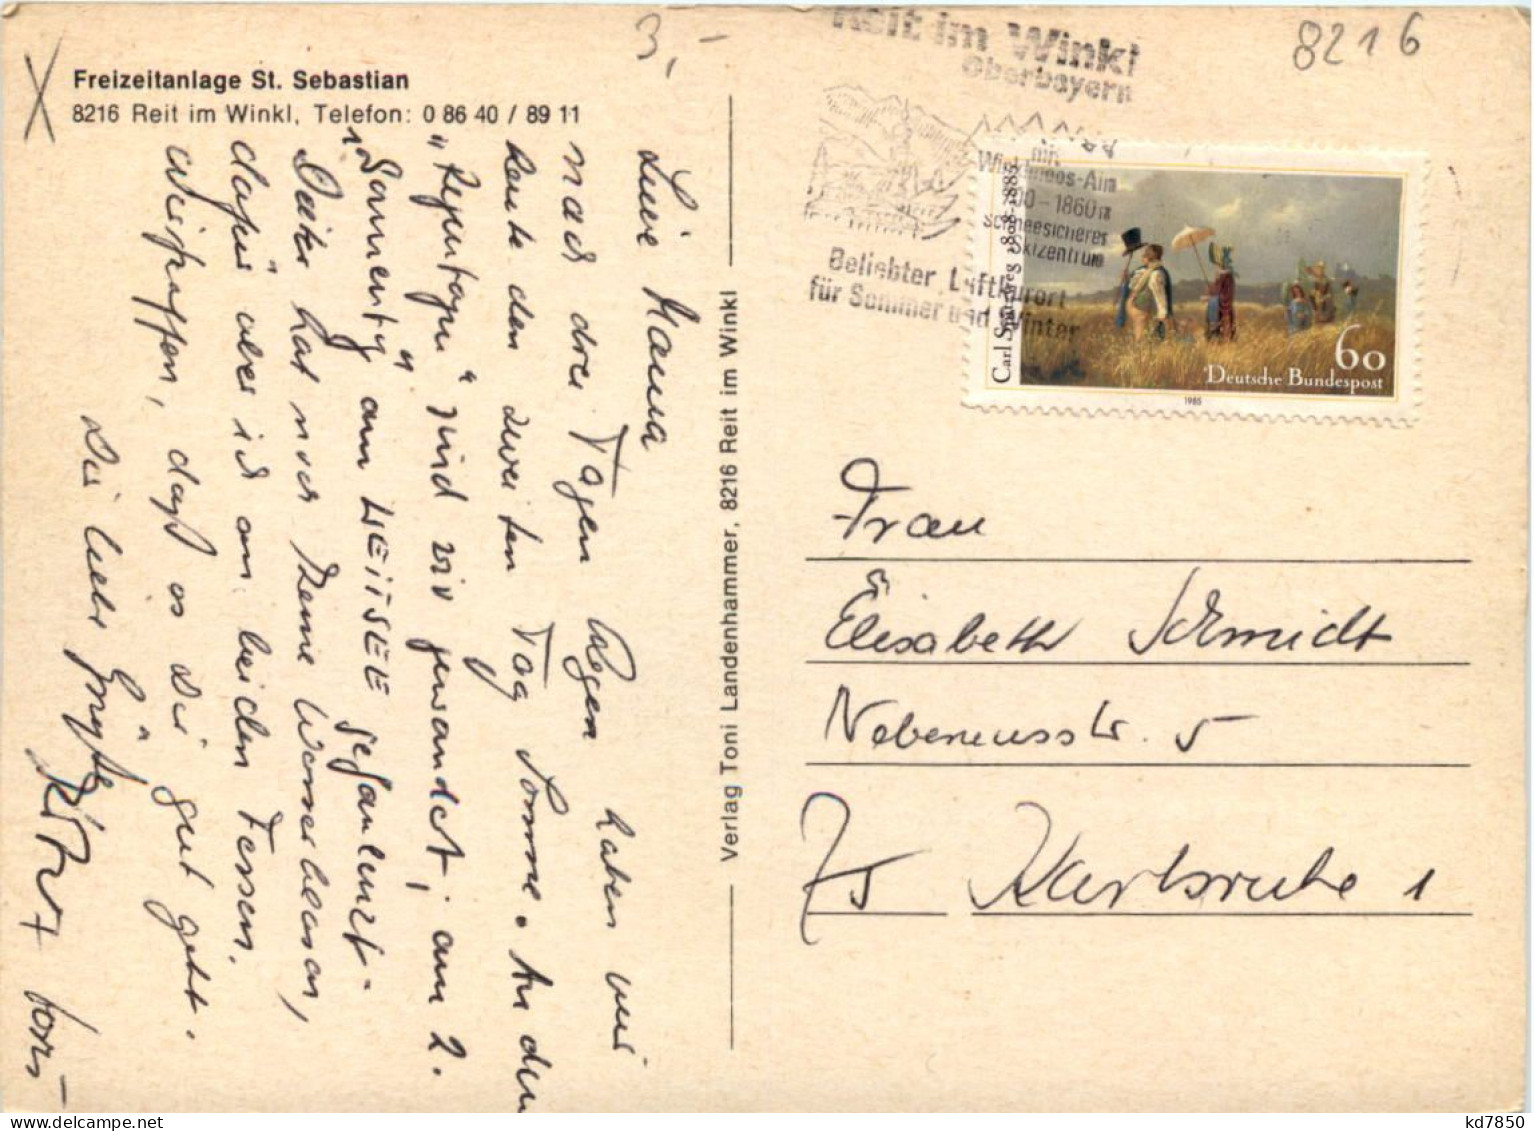 3,-
8216
Freizeitanlage St. Sebastian
8216 Reit im Winkl, Telefon: 0 86 40 / 89 11
Liebe Mama
nach drei Tagen Regen haben wir
heute den zweiten Tag Sonne. An den
"Regentagen" sind wir gewandert, am 2.
Sonnentag am WEITSEE gefaulenzt.
Dieter hat noch keine Wasserblasen,
dafür aber ich an beiden Fersen.
Wir hoffen, daß es Dir gut geht.
Dir liebe Grüße
Verlag Toni Landenhammer, 8216 Reit im Winkl
Reit im Winkl
Oberbayern
mit
Winklmoos-Alm
700-1860m
schneesicheres
Skizentrum
Beliebter Luftkurort
für Sommer und Winter
Carl Spitzweg 1808-1885
60
Deutsche Bundespost
1985
Frau
Elisabeth Schmidt
Nebeniusstr. 5
75 Karlsruhe 1
kd7850